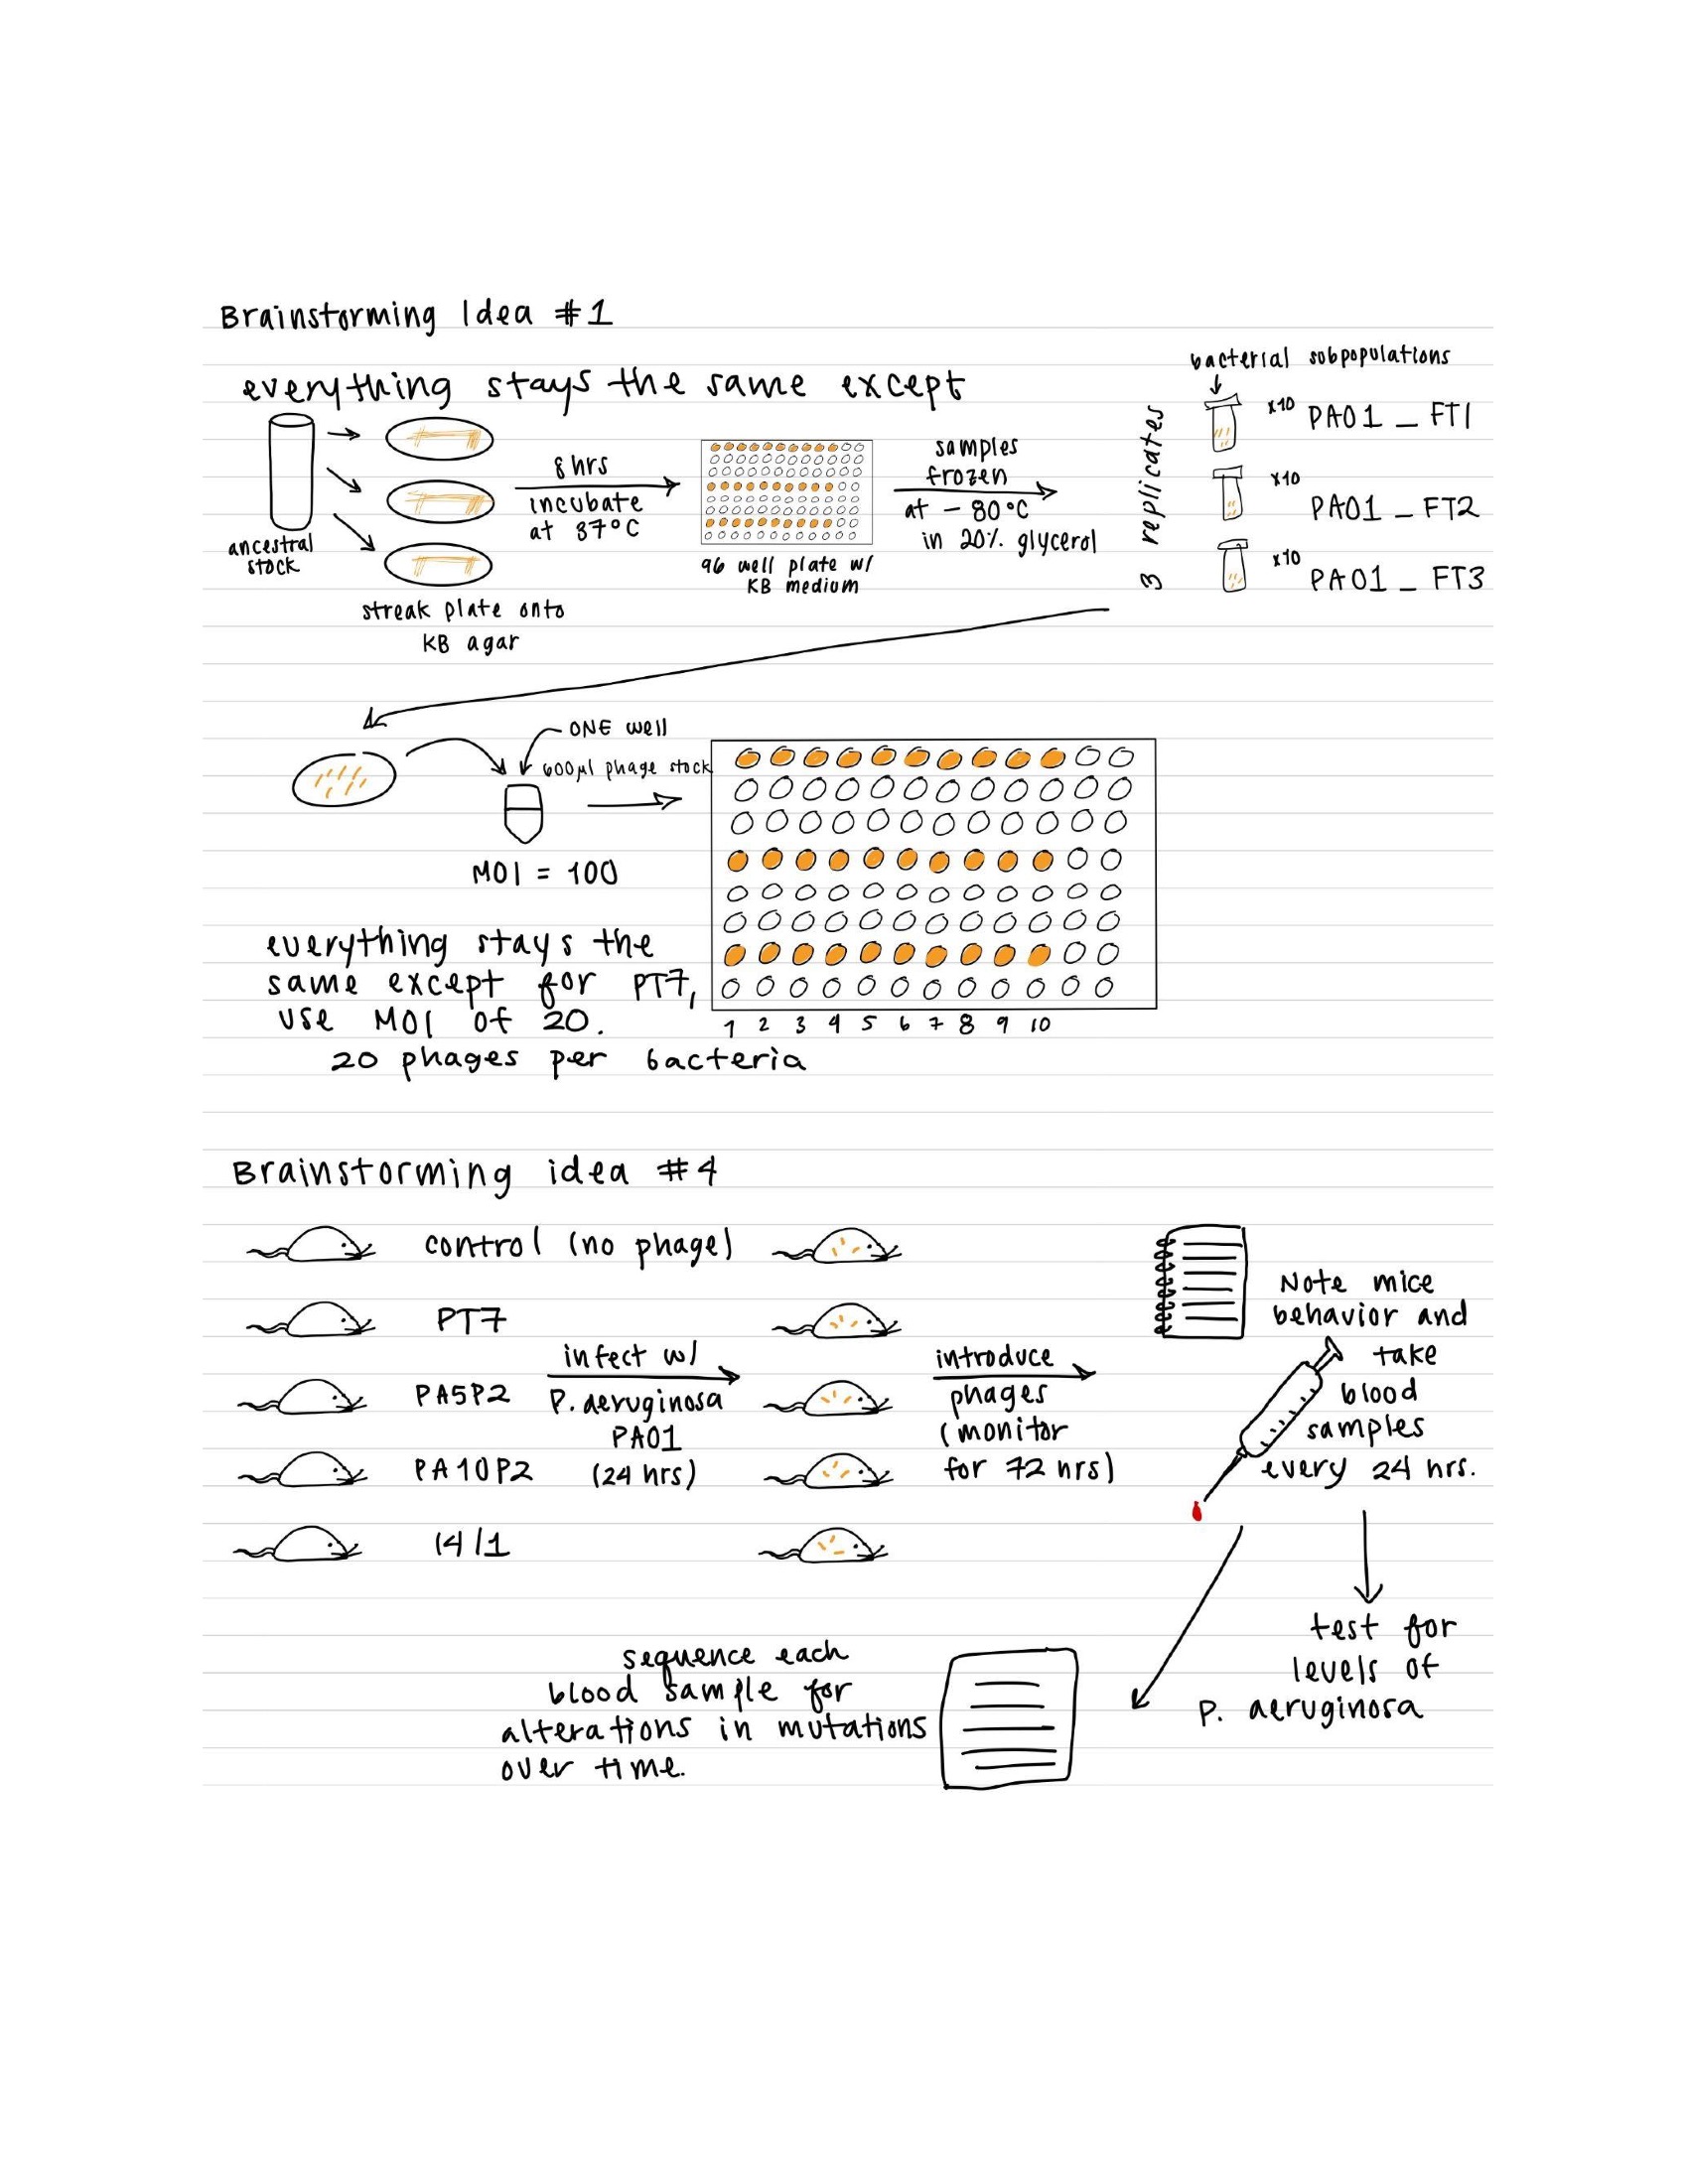 Brainstorming Idea #1
everything stays the same except
ancestral
stock
streak plate onto
KB agar
8 hrs
incubate
at 37°C
96 well plate w/
KB medium
samples
frozen
at -80°C
in 20% glycerol
3 replicates
bacterial subpopulations
x10 PA01_FT1
x10 PA01_FT2
x10 PA01_FT3
ONE well
600µl phage stock
MOI = 100
everything stays the
same except for PT7,
use MOI of 20.
20 phages per bacteria
1 2 3 4 5 6 7 8 9 10
Brainstorming idea #4
control (no phage)
PT7
PA5P2
PA10P2
14/1
infect w/
P. aeruginosa
PA01
(24 hrs)
introduce
phages
(monitor
for 72 hrs)
Note mice
behavior and
take
blood
samples
every 24 hrs.
test for
levels of
P. aeruginosa
sequence each
blood sample for
alterations in mutations
over time.